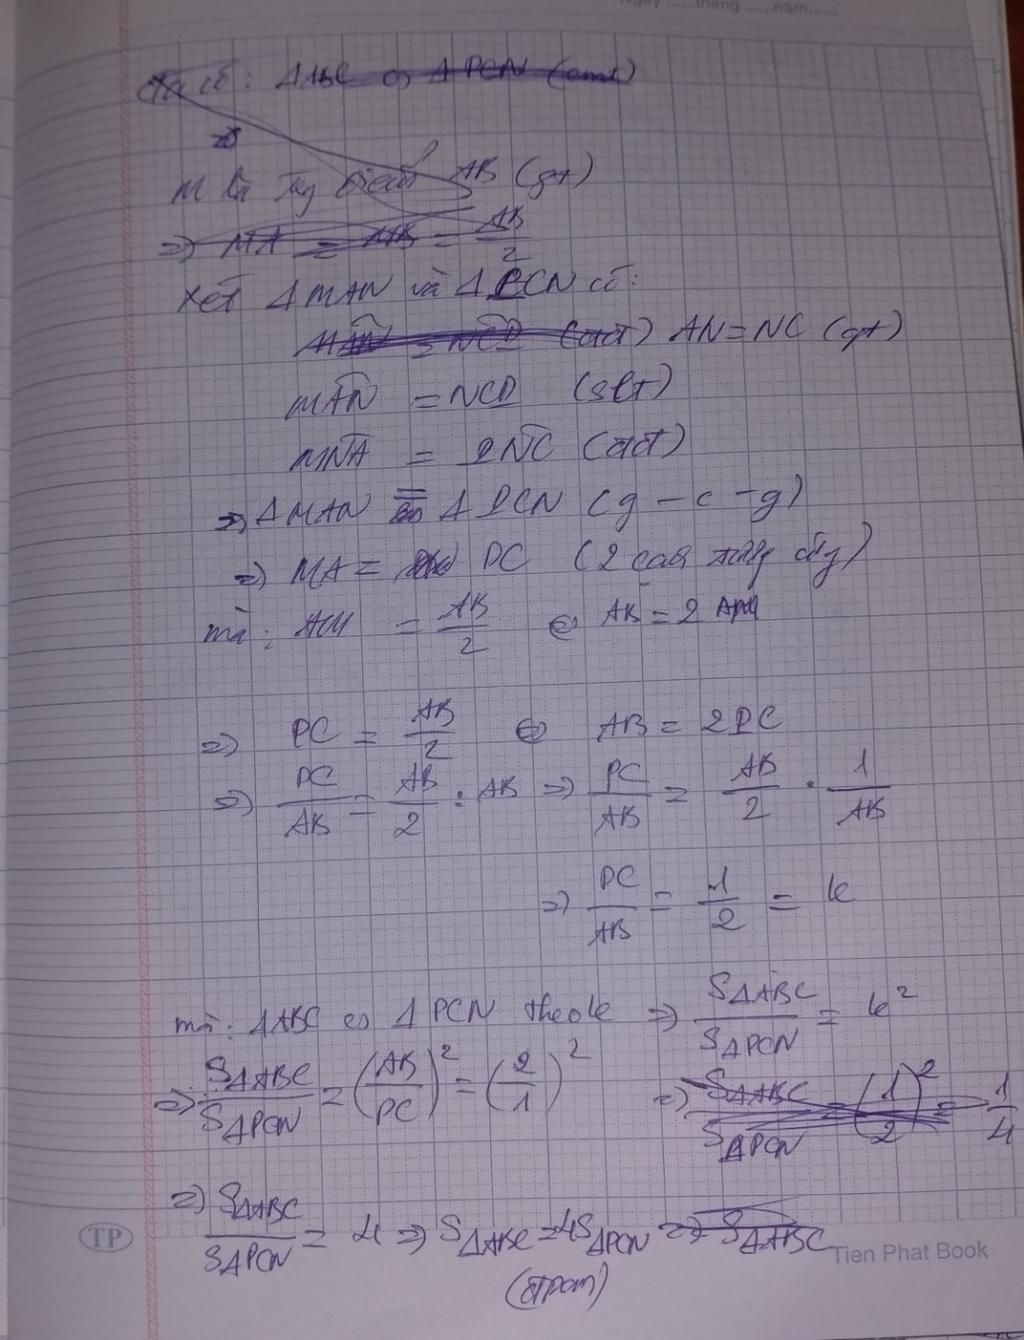 Ngày ......tháng ......năm......
Ta có: ΔABC ∽ ΔPCN (cmt)
=>
M là trung điểm AB (gt)
=> MA = MB = AB/2
Xét ΔMAN và ΔPCN có:
MAN = NCD (đđ) AN = NC (gt)
MAN = NCD (slt)
MNA = PNC (đđ)
=> ΔMAN = ΔPCN (g - c - g)
=> MA = PC (2 cạnh tương ứng)
mà: AM = AB/2 <=> AB = 2 AM
=> PC = AB/2 <=> AB = 2PC
=> PC/AB = AB/2 : AB => PC/AB = AB/2 . 1/AB
=> PC/AB = 1/2 = k
mà: ΔABC ∽ ΔPCN theo k => SΔABC/SΔPCN = k²
=> SΔABC/SΔPCN = (AB/PC)² = (2/1)² => SΔABC/SΔPCN = (1/2)² = 1/4
=> SΔABC/SΔPCN = 4 => SΔABC = 4SΔPCN => SΔABC
(đpcm)
TP Tien Phat Book